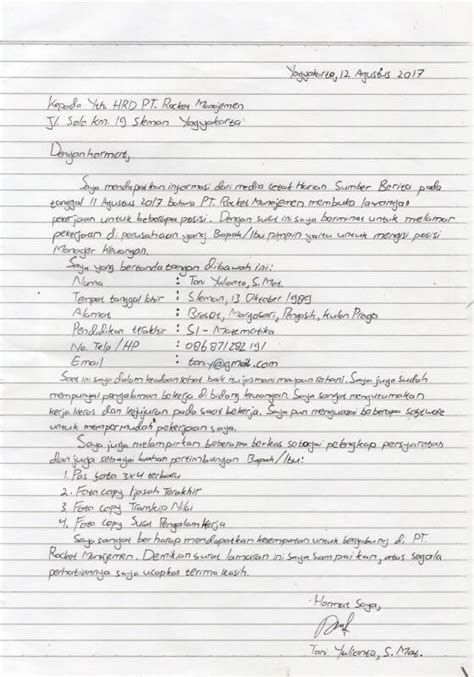 Yogyakarta, 12 Agustus 2017
Kepada Yth. HRD PT. Rocket Manajemen
Jl. Solo km. 19 Sleman Yogyakarta
Dengan hormat,
Saya mendapatkan informasi dari media cetak Harian Sumber Berita pada
tanggal 11 Agustus 2017 bahwa PT. Rocket Manajemen membuka lawongan
pekerjaan untuk beberapa posisi. Dengan surat ini saya berminat untuk melamar
pekerjaan di perusahaan yang Bapak/Ibu pimpin yaitu untuk mengisi posisi
Manager Keuangan.
Saya yang bertanda tangan dibawah ini:
Nama : Toni Yulianto, S. Mat.
Tempat tanggal lahir : Sleman, 13 Oktober 1989
Alamat : Brosot, Margosari, Pengasih, Kulon Progo
Pendidikan terakhir : S1 - Matematika
No. Telp / HP : 086871282191
Email : toniy@gmail.com
Saat ini saya dalam keadaan sehat baik itu jasmani maupun rohani. Saya juga sudah
mempunyai pengalaman bekerja di bidang keuangan. Saya sangat mengutamakan
kerja keras dan kejujuran pada saat bekerja. Saya pun menguasai beberapa software
untuk mempermudah pekerjaan saya.
Saya juga melampirkan beberapa berkas sebagai pelengkap persyaratan
dan juga sebagai bahan pertimbangan Bapak/Ibu:
1. Pas foto 3x4 terbaru
2. Foto copy Ijasah Terakhir
3. Foto copy Transkip Nilai
4. Foto copy Surat Pengalam Kerja
Saya sangat berharap mendapatkan kesempatan untuk bergabung di PT.
Rocket Manajemen. Demikian surat lamaran ini saya sampaikan, atas segala
perhatiannya saya ucapkan terima kasih.
Hormat Saya,
Toni Yulianto, S. Mat.